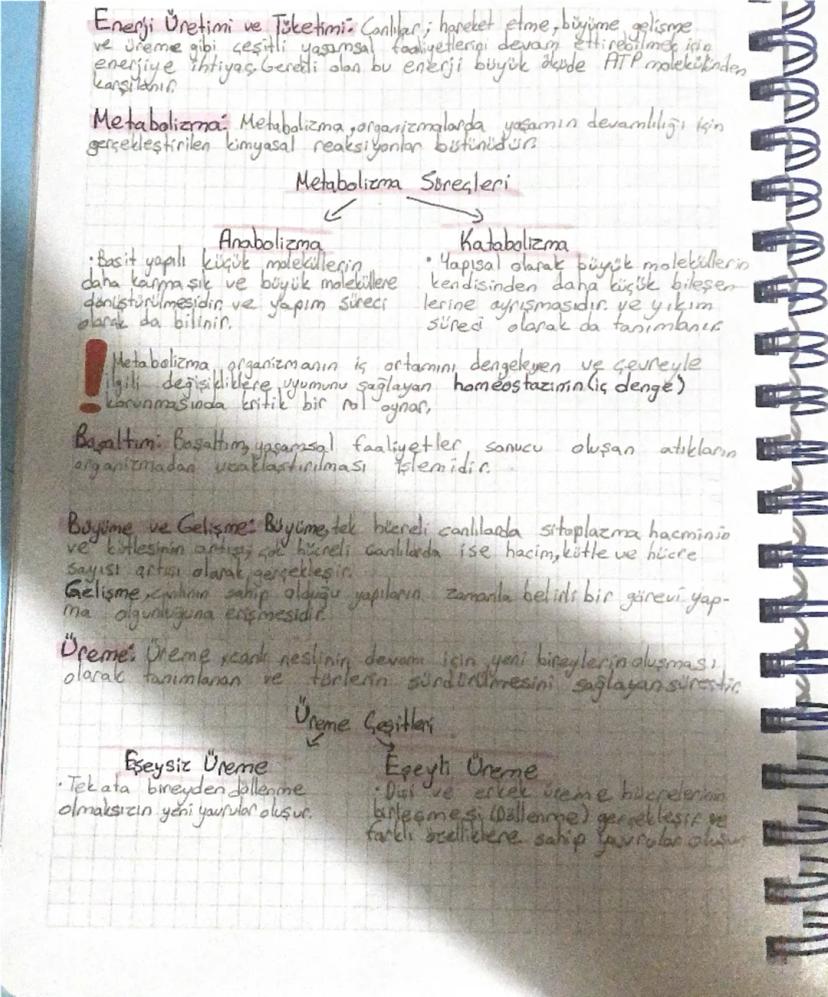 Enerji Üretimi ve Tüketimi: Canlılar; hareket etme, büyüme gelişme
ve üreme gibi çeşitli yaşamsal faaliyetlerini devam ettirebilmek için
enerjiye ihtiyaç. Gerekli olan bu enerji büyük ölçüde ATP molekülünden
karşılanır.
Metabolizma: Metabolizma, organizmalarda yaşamın devamlılığı için
gerçekleştirilen kimyasal reaksiyonlar bütünüdür.
Metabolizma Süreçleri
Anabolizma
• Basit yapılı küçük moleküllerin
daha karmaşık ve büyük moleküllere
dönüştürülmesidir ve yapım süreci
olarak da bilinir.
Katabolizma
• Yapısal olarak büyük moleküllerin
kendisinden daha küçük bileşen-
lerine ayrışmasıdır. ve yıkım
süreci olarak da tanımlanır.
! Metabolizma organizmanın iç ortamını dengeleyen ve çevreyle
ilgili değişikliklere uyumunu sağlayan homeostazinin (iç denge)
korunmasında kritik bir rol oynar.
Boşaltım: Boşaltım, yaşamsal faaliyetler sonucu oluşan atıkların
organizmadan uzaklaştırılması işlemidir.
Büyüme ve Gelişme: Büyüme, tek hücreli canlılarda sitoplazma hacminin
ve kütlesinin artışı; çok hücreli canlılarda ise hacim, kütle ve hücre
sayısı artışı olarak gerçekleşir.
Gelişme, canlının sahip olduğu yapıların zamanla belirli bir görevi yap-
ma olgunluğuna erişmesidir.
Üreme: Üreme, canlı neslinin devamı için yeni bireylerin oluşması
olarak tanımlanan ve türlerin sürdürülmesini sağlayan süreçtir.
Üreme Çeşitleri
Eşeysiz Üreme
• Tek ata bireyden döllenme
olmaksızın yeni yavrular oluşur.
Eşeyli Üreme
• Dişi ve erkek üreme hücrelerinin
birleşmesi (Döllenme) gerçekleşir ve
farklı özelliklere sahip yavrular oluşur